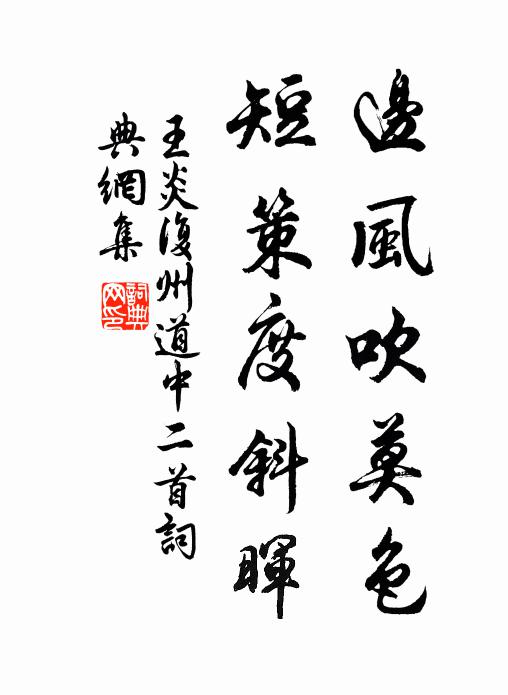 邊風吹莫色
短策度斜暉
王炎復州道中二首詞
典網集
詞典網印